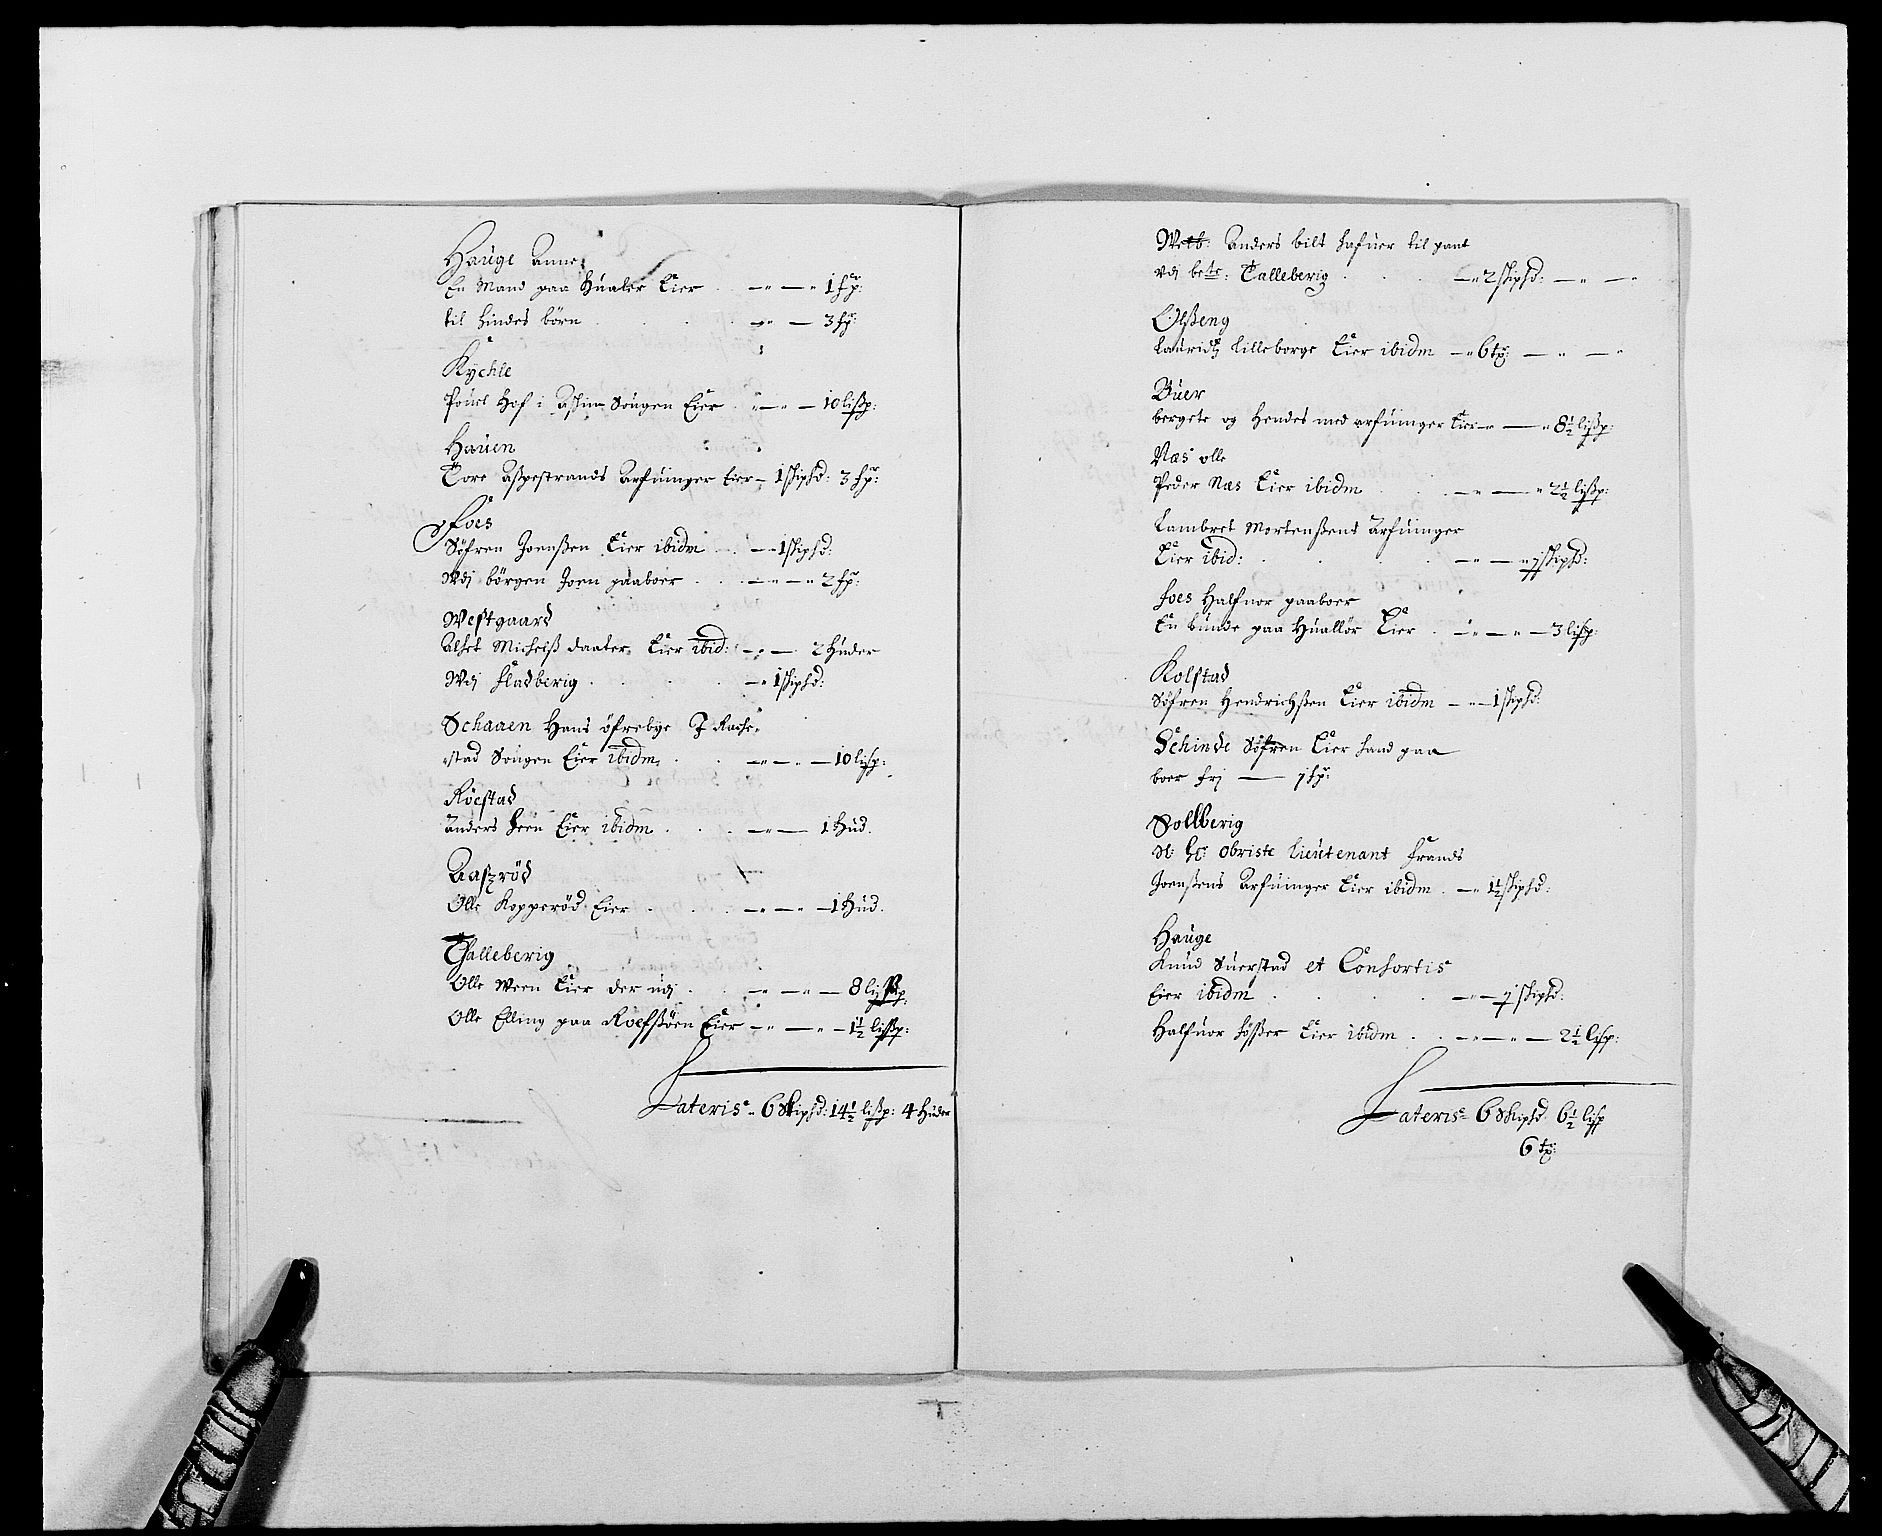 Hauge Anne
En Mand paa Hualer Eier . -"- -" 1 fp:
til hindes börn . . . . -"- - 3 fp:
Kychle
Pouel Hof i Aschim Sougen Eier . "-"- 10 lißp:
Hauen
Tore Aßpestrands Arfuinger Eier - 1 skipd: 3 fp:
Foes
Söfren Joenßen Eier ibidm . . -"- 1 skipd:
Wdj börgen Joen paaboer . . . -"-"-" 2 fp:
Westgaard
Alhet Michelß daater Eier ibid: -"- 2 Huder
Wdj Fladberig . . . . -" 1 skipd:
Schaaen Hans öfrebye J Rache-
stad Sougen Eier ibidm . . -"-"- 10 lisp:
Röestad
Anders Heen Eier ibidm . . . -"- 1 Hud.
Aaszröd
Olle Kopperöd Eier . . . -"-"- 1 Hud.
Thalleberig
Olle Ween Eier der udj . . -"-"- 8 lißp:
Olle Elling paa Roefsöen Eier -"-"- 1½ lißp:
Lateris - 6 Skipd: 14½ lißp: 4 Huder
Welb: Anders bilt hafuer til pant
vdj bete: Talleberig . . . -" 2 skipd: -"-"
Olßeng
Lauridz Lilleborge Eier ibidm -" 6 tp: -"-"
Buer
bergete og Hendes med arfuinger Eier -"-" 8½ lißp:
Næs olle
Peder Næs Eier ibidm . . . -"-" 2½ lißp:
Lambret Mortenßens Arfuinger
Eier ibid: . . . . -"-" 1 skipd:
Foes Halfuor paaboer
En bunde paa Huallör Eier . -"-"- 3 lisp:
Kolstad
Söfren Hendrichßen Eier ibidm -"- 1 skipd:
Schinde Söfren Eier hand paa
boer frj - 1 fp:
Sollberig
Sl: Hr: obriste Lieutenant Frands
Joenßens Arfuinger Eier ibidm . -" 1½ skipd:
Hauge
Knud Suerstad et Consortis
Eier ibidm . . . . -"- 1 skipd:
Halfuor Fößer Eier ibidm . . -"-"- 2½ lisp:
Lateris - 6 Skipd 6½ lisp
6 tp: